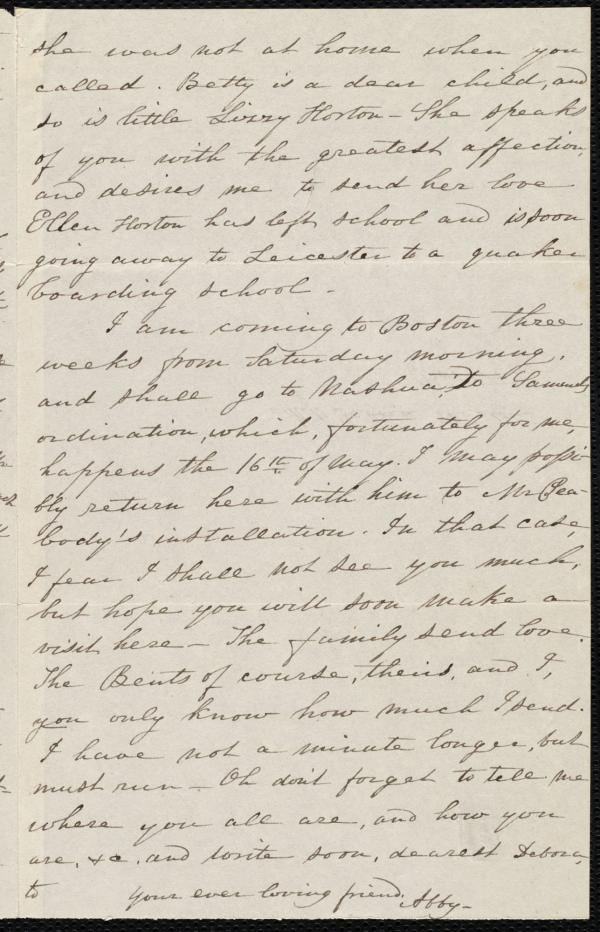 she was not at home when you
called. Betty is a dear child, and
so is little Lizzy Horton - She speaks
of you with the greatest affection,
and desires me to send her love
Ellen Horton has left school and is soon
going away to Leicester to a quaker
boarding school -
I am coming to Boston three
weeks from Saturday morning,
and shall go to Nashua, to Samuel's
ordination, which, fortunately for me,
happens the 16th of May. I may possi
bly return here with him to Mr Pea-
body's installation. In that case,
I fear I shall not see you much,
but hope you will soon make a
visit here - The family send love.
The Bents of course, theirs, and I,
you only know how much I send.
I have not a minute longer, but
must run - Oh don't forget to tell me
where you all are, and how you
are, &c, and write soon, dearest Debora,
to your ever loving friend, Abby -